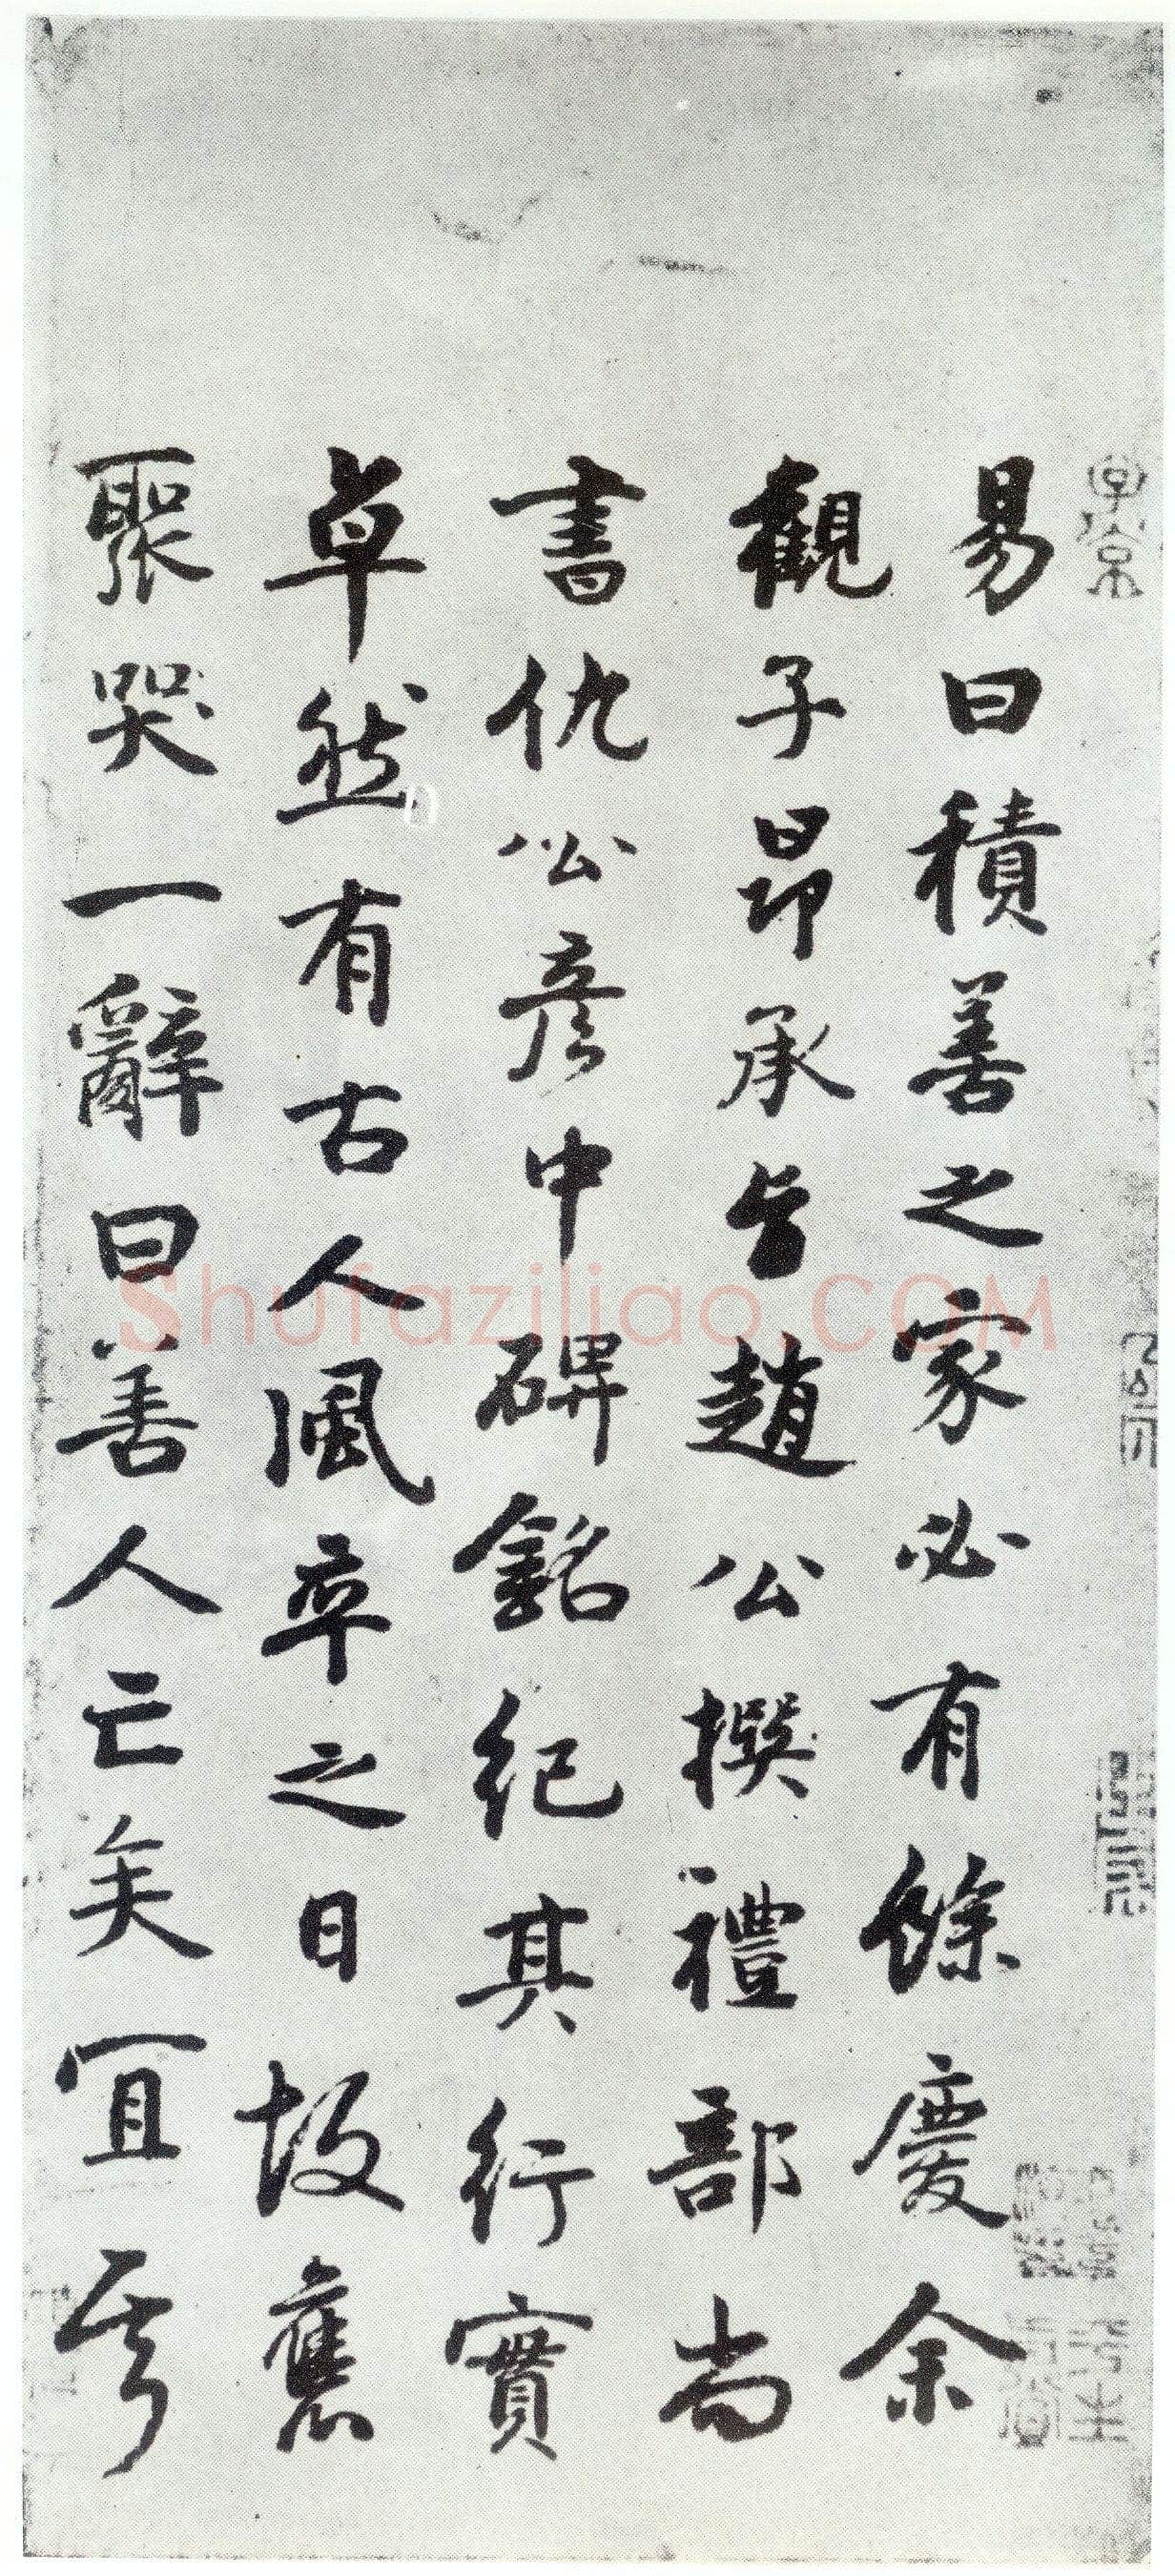 易曰積善之家必有餘慶余
觀子昂承旨趙公撰禮部尚
書仇公彥中碑銘紀其行實
卓然有古人風卒之日故舊
聚哭一辭曰善人亡矣宜乎
Shufaziliao.COM